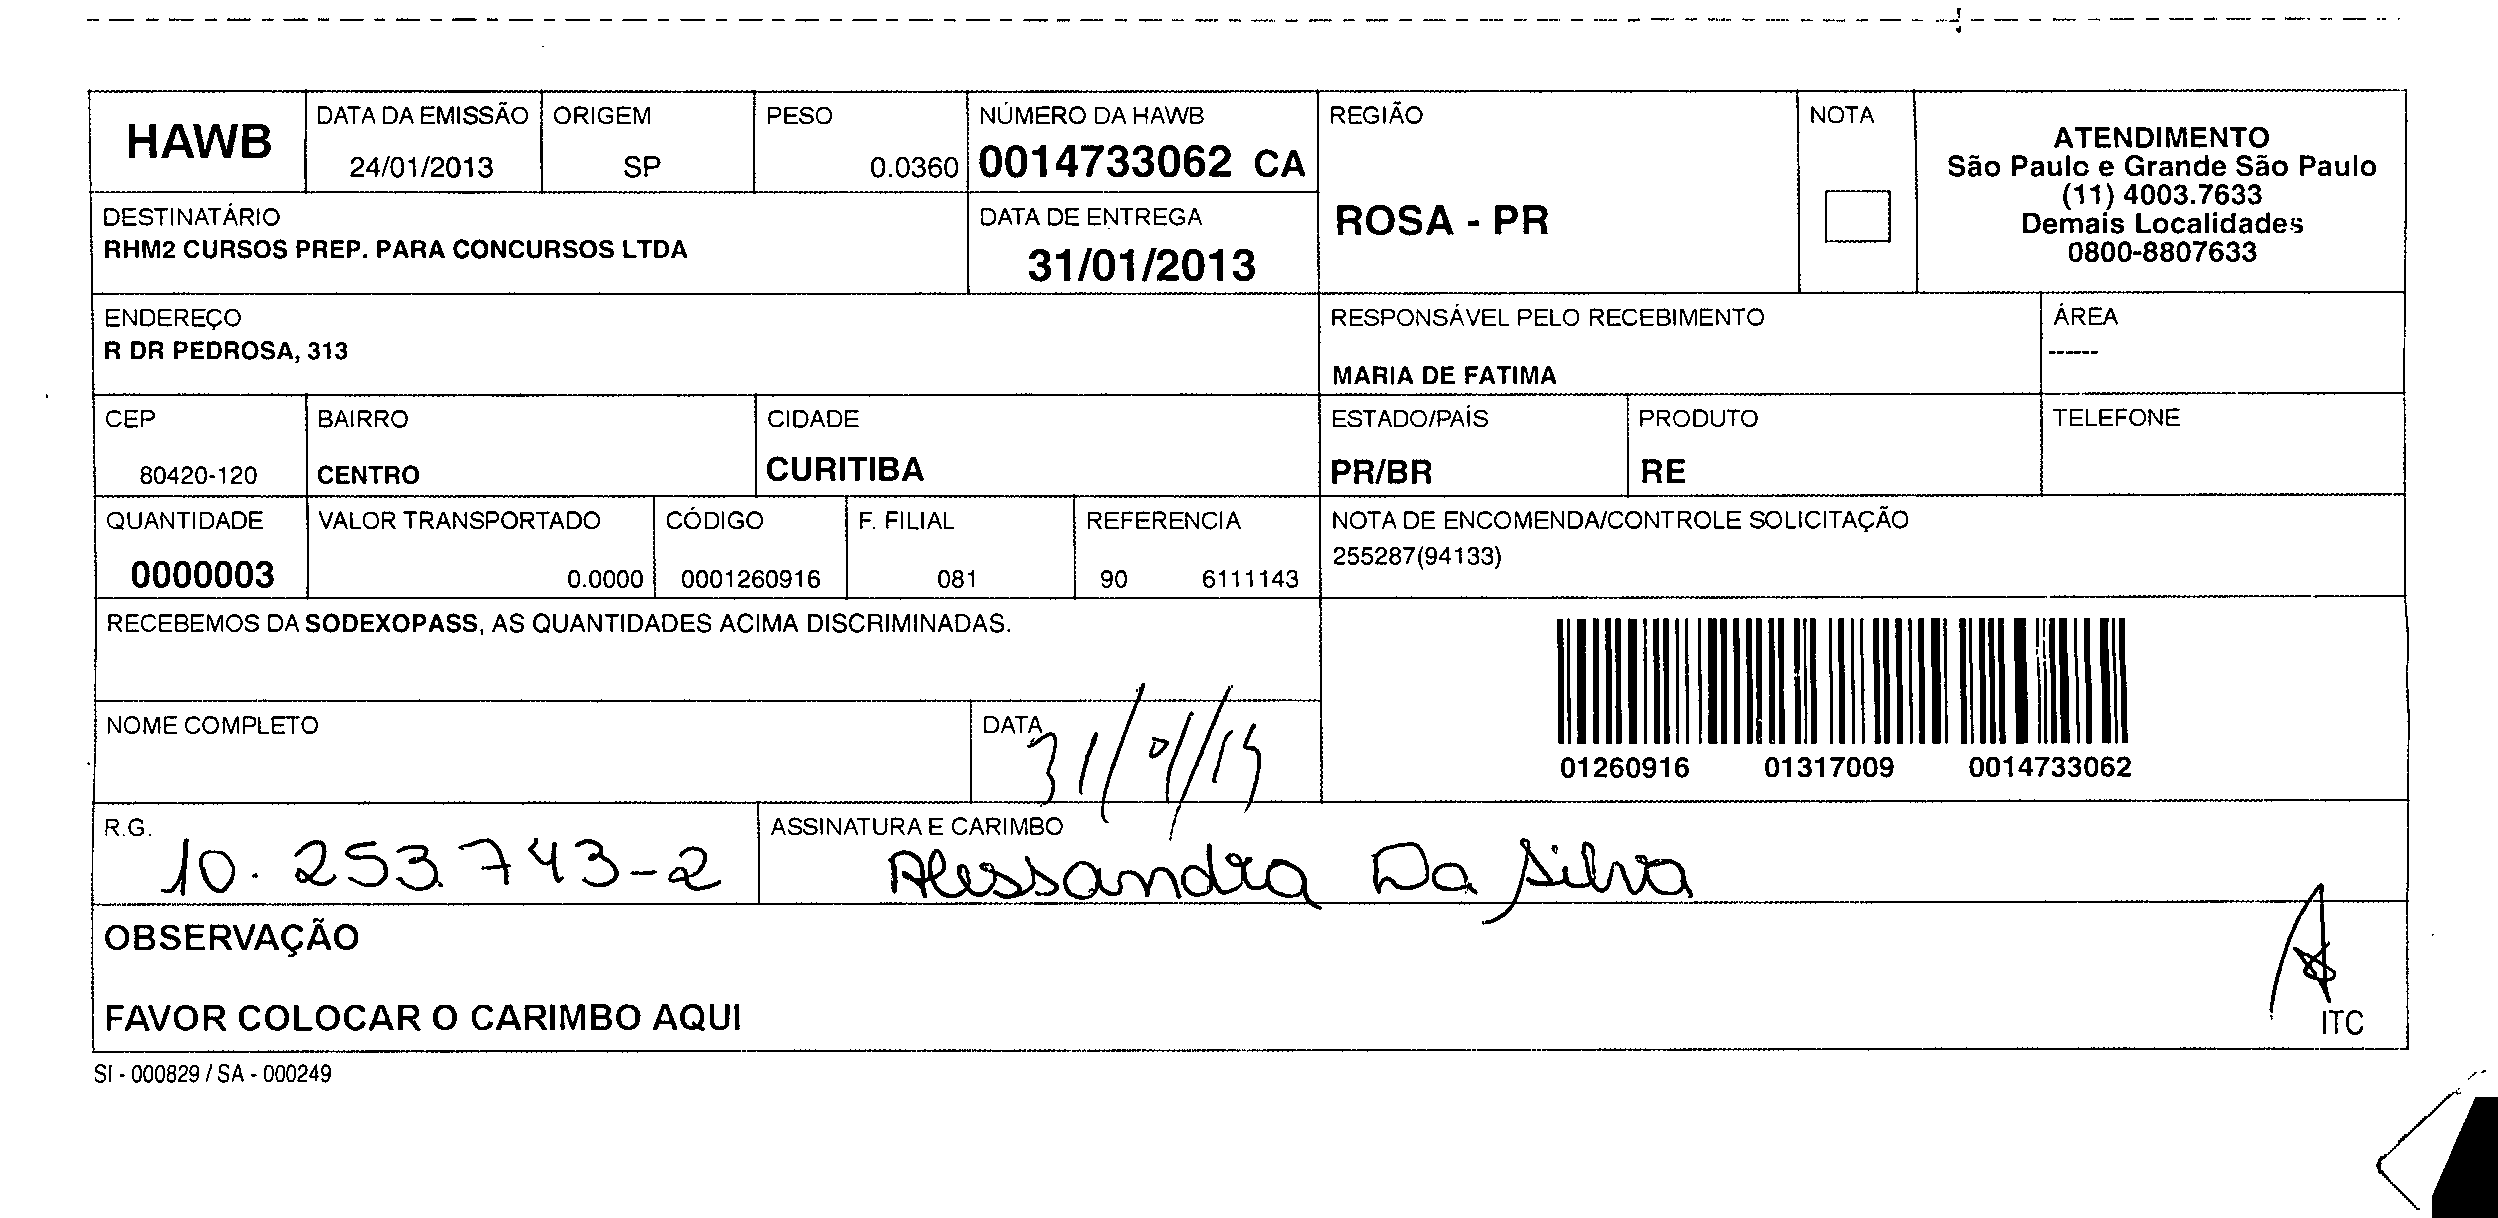 HAWB
DATA DA EMISSÃO
24/01/2013
ORIGEM
SP
PESO
0.0360
NÚMERO DA HAWB
0014733062 CA
REGIÃO
ROSA - PR
NOTA
ATENDIMENTO
São Paulo e Grande São Paulo
(11) 4003.7633
Demais Localidades
0800-8807633
DESTINATÁRIO
RHM2 CURSOS PREP. PARA CONCURSOS LTDA
DATA DE ENTREGA
31/01/2013
ENDEREÇO
R DR PEDROSA, 313
RESPONSÁVEL PELO RECEBIMENTO
MARIA DE FATIMA
ÁREA
------
CEP
80420-120
BAIRRO
CENTRO
CIDADE
CURITIBA
ESTADO/PAÍS
PR/BR
PRODUTO
RE
TELEFONE
QUANTIDADE
0000003
VALOR TRANSPORTADO
0.0000
CÓDIGO
0001260916
F. FILIAL
081
REFERENCIA
90 6111143
NOTA DE ENCOMENDA/CONTROLE SOLICITAÇÃO
255287(94133)
RECEBEMOS DA SODEXOPASS, AS QUANTIDADES ACIMA DISCRIMINADAS.
01260916 01317009 0014733062
NOME COMPLETO
DATA
R.G.
10.253.743-2
ASSINATURA E CARIMBO
Alessandra Da Silva
OBSERVAÇÃO
FAVOR COLOCAR O CARIMBO AQUI
ITC
SI - 000829 / SA - 000249